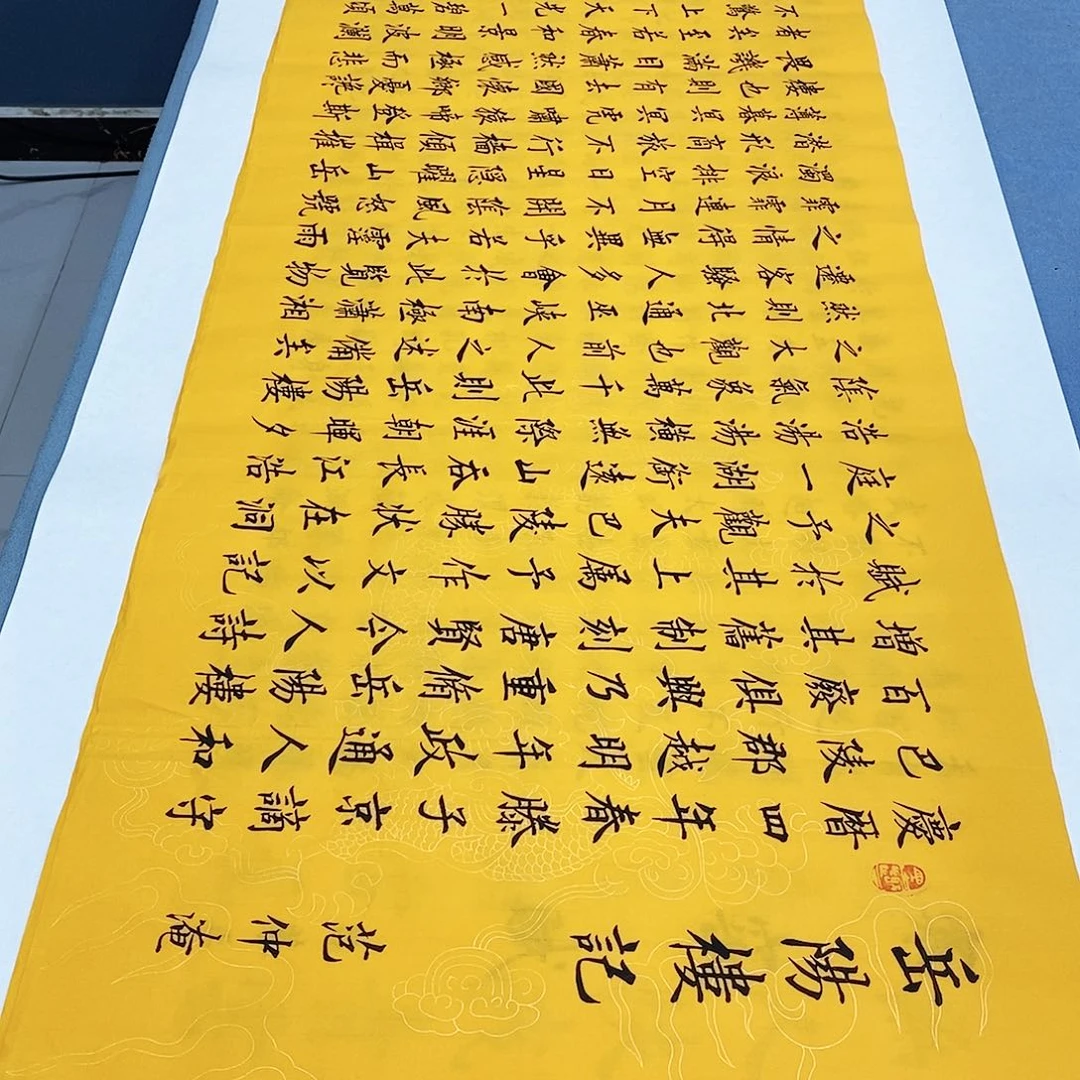 岳陽樓記
范仲淹
慶曆四年春滕子京謫守
巴陵郡越明年政通人和
百廢俱興乃重脩岳陽樓
增其舊制刻唐賢今人詩
賦於其上屬予作文以記
之予觀夫巴陵勝狀在洞
庭一湖銜遠山吞長江浩
浩湯湯橫無際涯朝暉夕
陰氣象萬千此則岳陽樓
之大觀也前人之述備矣
然則北通巫峽南極瀟湘
遷客騷人多會於此覽物
之情得無異乎若夫霪雨
霏霏連月不開陰風怒號
濁浪排空日星隱曜山岳
潛形商旅不行檣傾楫摧
薄暮冥冥虎嘯猿啼登斯
樓也則有去國懷鄉憂讒
畏譏滿目蕭然感極而悲
者矣至若春和景明波瀾
不驚上下天光一碧萬頃